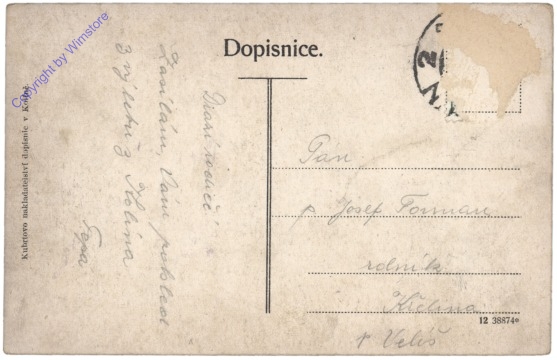 Dopisnice.
Drazí rodiče!
Zasílám Vám pohled
z výletu z Kolína
Pepa
Pan
p. Josef Forman
rolník
Křelina
p Veliš
12 38874
Kuhrtovo nakladatelství dopisnic v Kolíně
Copyright by Wimstore